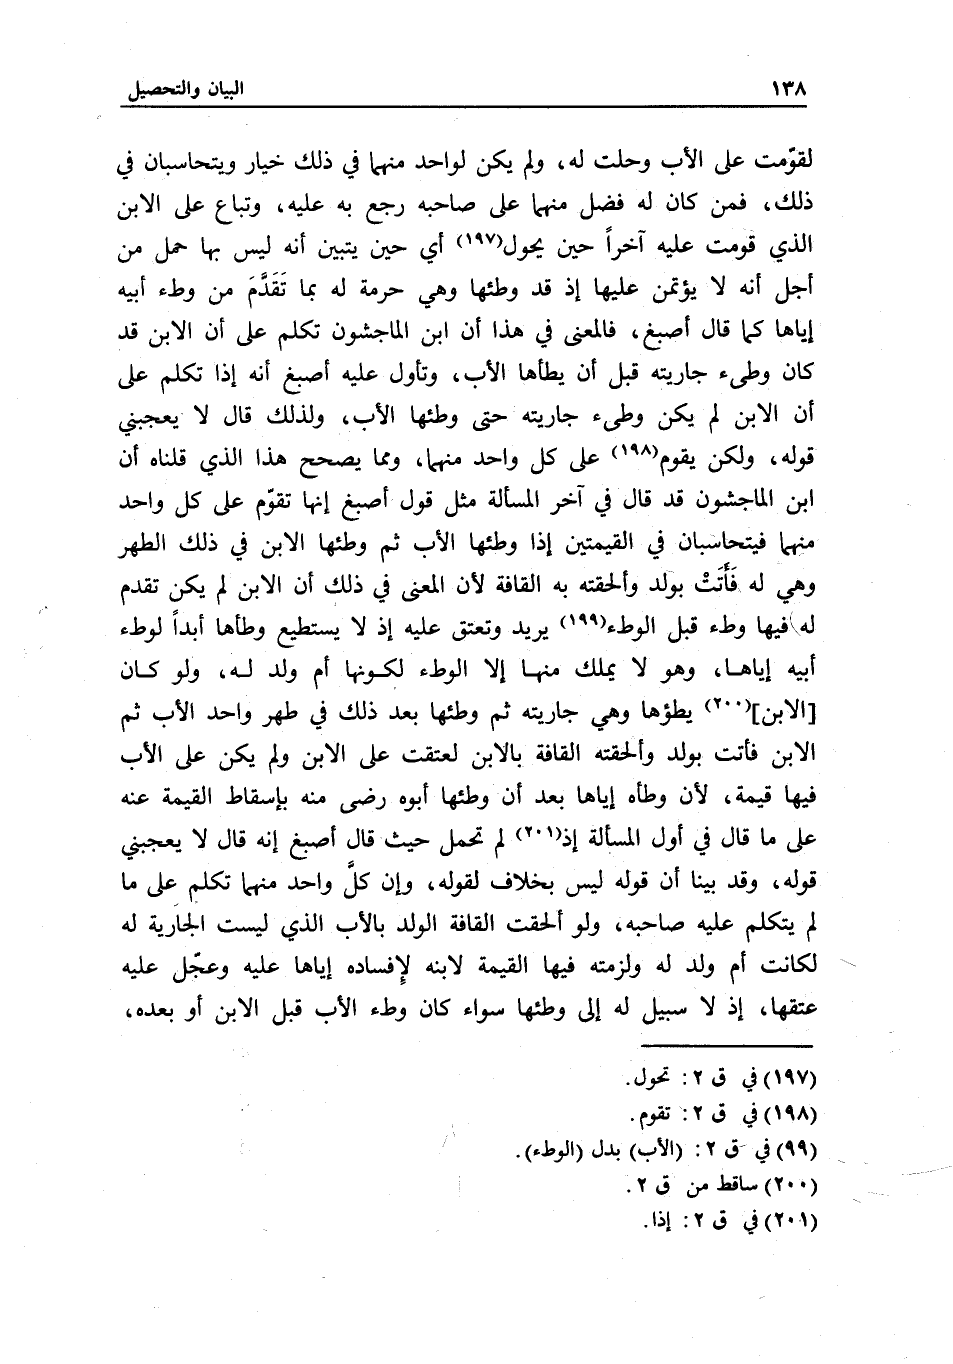 ١٣٨
البيان والتحصيل
لقوّمت على الأب وحلت له، ولم يكن لواحد منهما في ذلك خيار ويتحاسبان في
ذلك، فمن كان له فضل منهما على صاحبه رجع به عليه، وتباع على الابن
الذي قومت عليه آخراً حين يحول(١٩٧) أي حين يتبين أنه ليس بها حمل من
أجل أنه لا يؤتمن عليها إذ قد وطئها وهي حرمة له بما تَقَدَّمَ من وطء أبيه
إياها كما قال أصبغ، فالمعنى في هذا أن ابن الماجشون تكلم على أن الابن قد
كان وطىء جاريته قبل أن يطأها الأب، وتأول عليه أصبغ أنه إذا تكلم على
أن الابن لم يكن وطىء جاريته حتى وطئها الأب، ولذلك قال لا يعجبني
قوله، ولكن يقوم(١٩٨) على كل واحد منهما، ومما يصحح هذا الذي قلناه أن
ابن الماجشون قد قال في آخر المسألة مثل قول أصبغ إنها تقوّم على كل واحد
منهما فيتحاسبان في القيمتين إذا وطئها الأب ثم وطئها الابن في ذلك الطهر
وهي له فَأَتَتْ بولد وألحقته به القافة لأن المعنى في ذلك أن الابن لم يكن تقدم
له فيها وطء قبل الوطء(١٩٩) يريد وتعتق عليه إذ لا يستطيع وطأها أبداً لوطء
أبيه إياهـا، وهو لا يملك منهـا إلا الوطء لكـونها أم ولد لـه، ولو كـان
[الابن](٢٠٠) يطؤها وهي جاريته ثم وطئها بعد ذلك في طهر واحد الأب ثم
الابن فأتت بولد وألحقته القافة بالابن لعتقت على الابن ولم يكن على الأب
فيها قيمة، لأن وطأه إياها بعد أن وطئها أبوه رضى منه بإسقاط القيمة عنه
على ما قال في أول المسألة إذ(٢٠١) لم تحمل حيث قال أصبغ إنه قال لا يعجبني
قوله، وقد بينا أن قوله ليس بخلاف لقوله، وإن كلَّ واحد منهما تكلم على ما
لم يتكلم عليه صاحبه، ولو ألحقت القافة الولد بالأب الذي ليست الجارية له
لكانت أم ولد له ولزمته فيها القيمة لابنه لإفساده إياها عليه وعجّل عليه
عتقها، إذ لا سبيل له إلى وطئها سواء كان وطء الأب قبل الابن أو بعده،
(١٩٧) في ق ٢: تحول.
(١٩٨) في ق ٢: تقوم.
(٩٩) في ق ٢: (الأب) بدل (الوطء).
(٢٠٠) ساقط من ق ٢.
(٢٠١) في ق ٢: إذا.